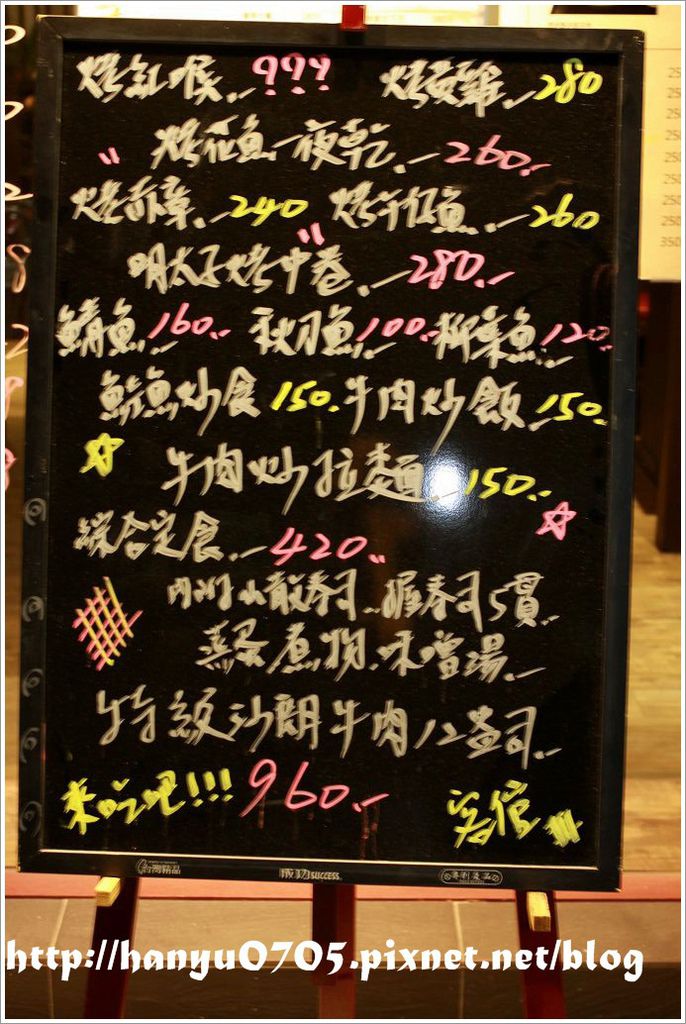 烤紅喉 ???
烤安雞 280
烤花魚一夜乾 260
烤赤章 240 烤午仔魚 260
明太子烤中卷 280
鯖魚 160 秋刀魚 100 柳葉魚 120
鮭魚炒食 150 牛肉炒飯 150
牛肉炒拉麵 150
綜合定食 420
散壽司 握壽司5貫
蒸蛋 煮物 味噌湯
特級沙朗牛肉12盎司
來吃吧!!! 960
台灣精品 成功 SUCCESS 專利產品
http://hanyu0705.pixnet.net/blog